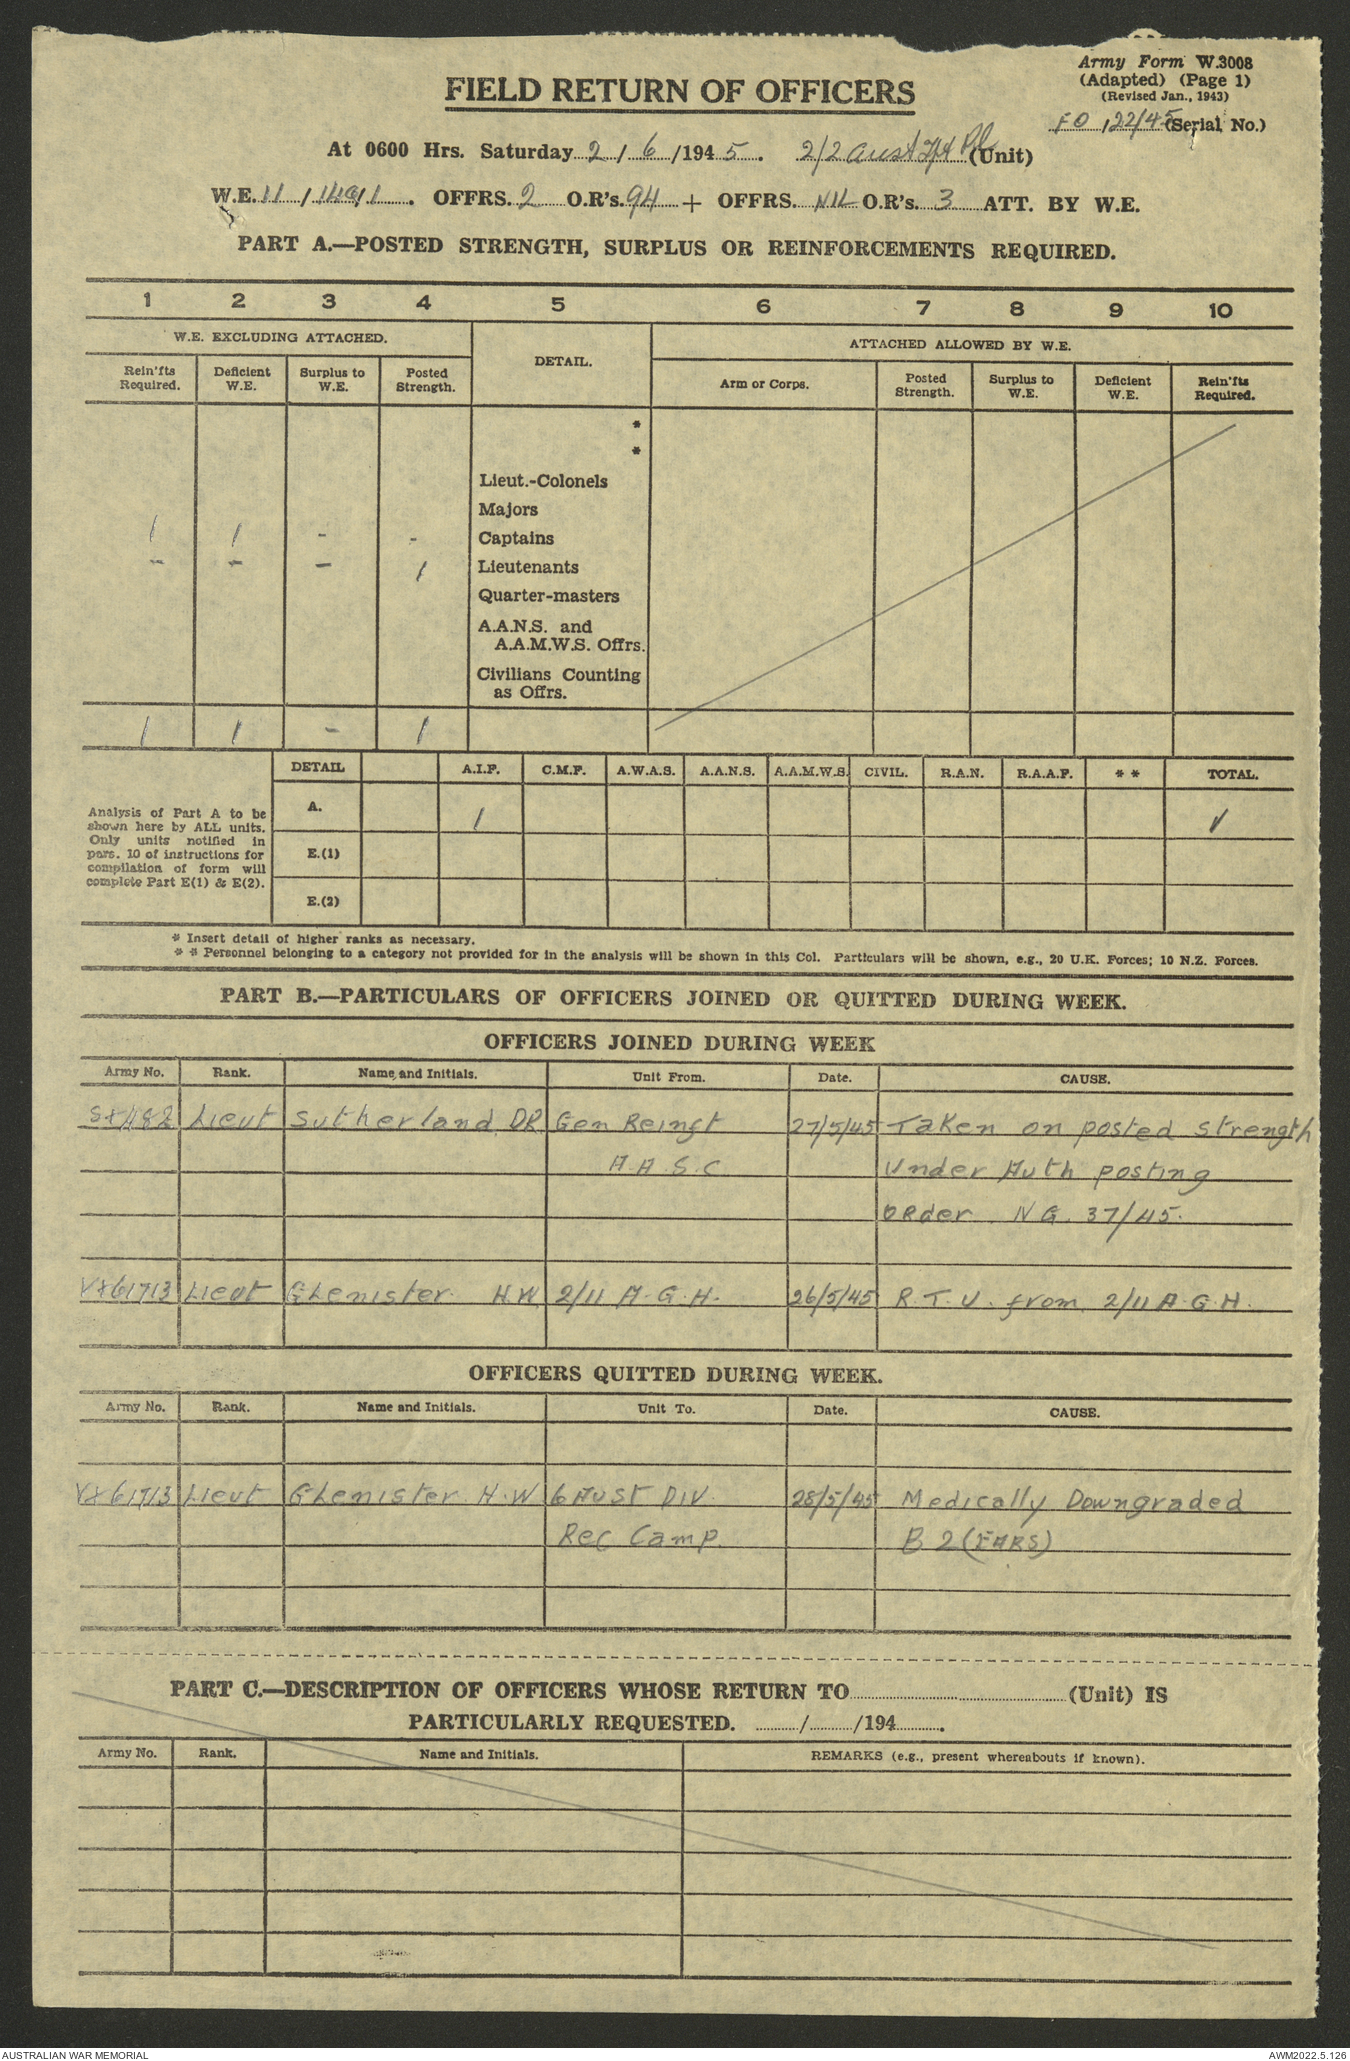 Army Form W.3008
(Adapted) (Page 1)
(Revised Jan., 1943)
FIELD RETURN OF OFFICERS
FO 122/45 (Serial No.)
At 0600 Hrs. Saturday 2 / 6 /1945. 2/2 Aust Tpt Pl (Unit)
W.E. 11 / 1491 / 1. OFFRS. 2 O.R's. 94 + OFFRS. NIL O.R's. 3 ATT. BY W.E.
PART A.—POSTED STRENGTH, SURPLUS OR REINFORCEMENTS REQUIRED.
1 2 3 4 5 6 7 8 9 10
W.E. EXCLUDING ATTACHED. DETAIL. ATTACHED ALLOWED BY W.E.
Rein'fts Required. Deficient W.E. Surplus to W.E. Posted Strength. Arm or Corps. Posted Strength. Surplus to W.E. Deficient W.E. Rein'fts Required.
*
*
Lieut.-Colonels
Majors
1 1 - - Captains
- - - 1 Lieutenants
Quarter-masters
A.A.N.S. and
A.A.M.W.S. Offrs.
Civilians Counting
as Offrs.
1 1 - 1
DETAIL A.I.F. C.M.F. A.W.A.S. A.A.N.S. A.A.M.W.S. CIVIL. R.A.N. R.A.A.F. * * TOTAL.
Analysis of Part A to be
shown here by ALL units.
Only units notified in
pars. 10 of instructions for
compilation of form will
complete Part E(1) & E(2).
A. 1 1
E.(1)
E.(2)
* Insert detail of higher ranks as necessary.
* * Personnel belonging to a category not provided for in the analysis will be shown in this Col. Particulars will be shown, e.g., 20 U.K. Forces; 10 N.Z. Forces.
PART B.—PARTICULARS OF OFFICERS JOINED OR QUITTED DURING WEEK.
OFFICERS JOINED DURING WEEK
Army No. Rank. Name and Initials. Unit From. Date. CAUSE.
SX1182 Lieut Sutherland DR Gen Reinft 27/5/45 Taken on posted strength
A.A.S.C. Under Auth posting
Order NG. 37/45.
VX61713 Lieut Glenister H.W 2/11 A.G.H. 26/5/45 R.T.U. from 2/11 A.G.H.
OFFICERS QUITTED DURING WEEK.
Army No. Rank. Name and Initials. Unit To. Date. CAUSE.
VX61713 Lieut Glenister H.W 6 Aust Div. 28/5/45 Medically Downgraded
Rec Camp. B2 (EARS)
PART C.—DESCRIPTION OF OFFICERS WHOSE RETURN TO (Unit) IS
PARTICULARLY REQUESTED. / /194 .
Army No. Rank. Name and Initials. REMARKS (e.g., present whereabouts if known).
AUSTRALIAN WAR MEMORIAL AWM2022.5.126